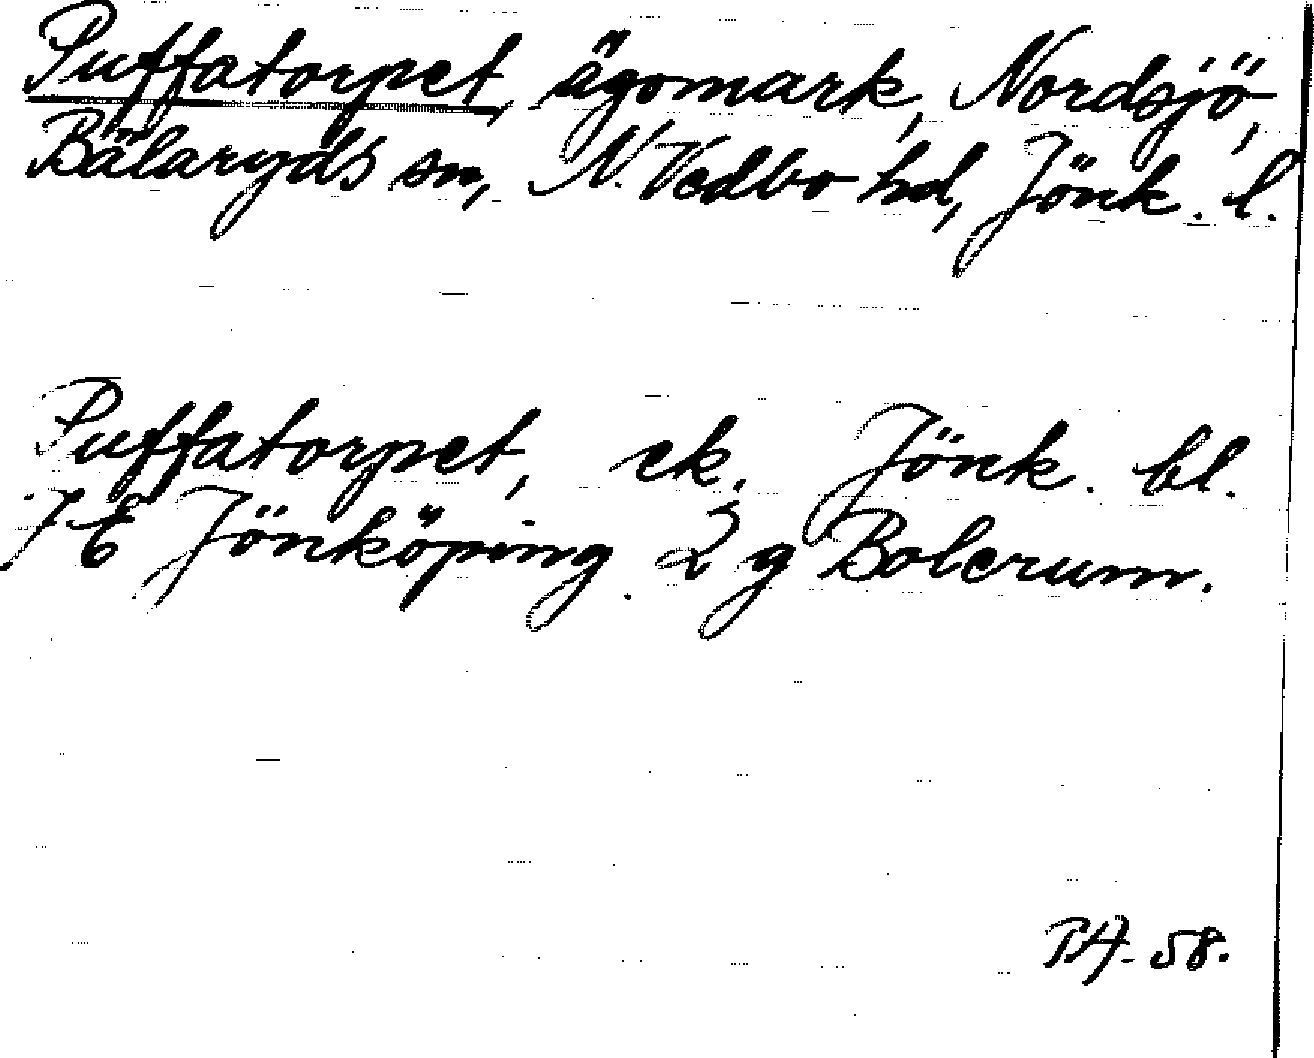 Puffatorpet, ägomark, Nordsjö,
Bälaryds sn, N. Vedbo hd, Jönk. l.
Puffatorpet, ek. Jönk. bl.
7 E Jönköping. 2 g Bolerum.
PA-58.